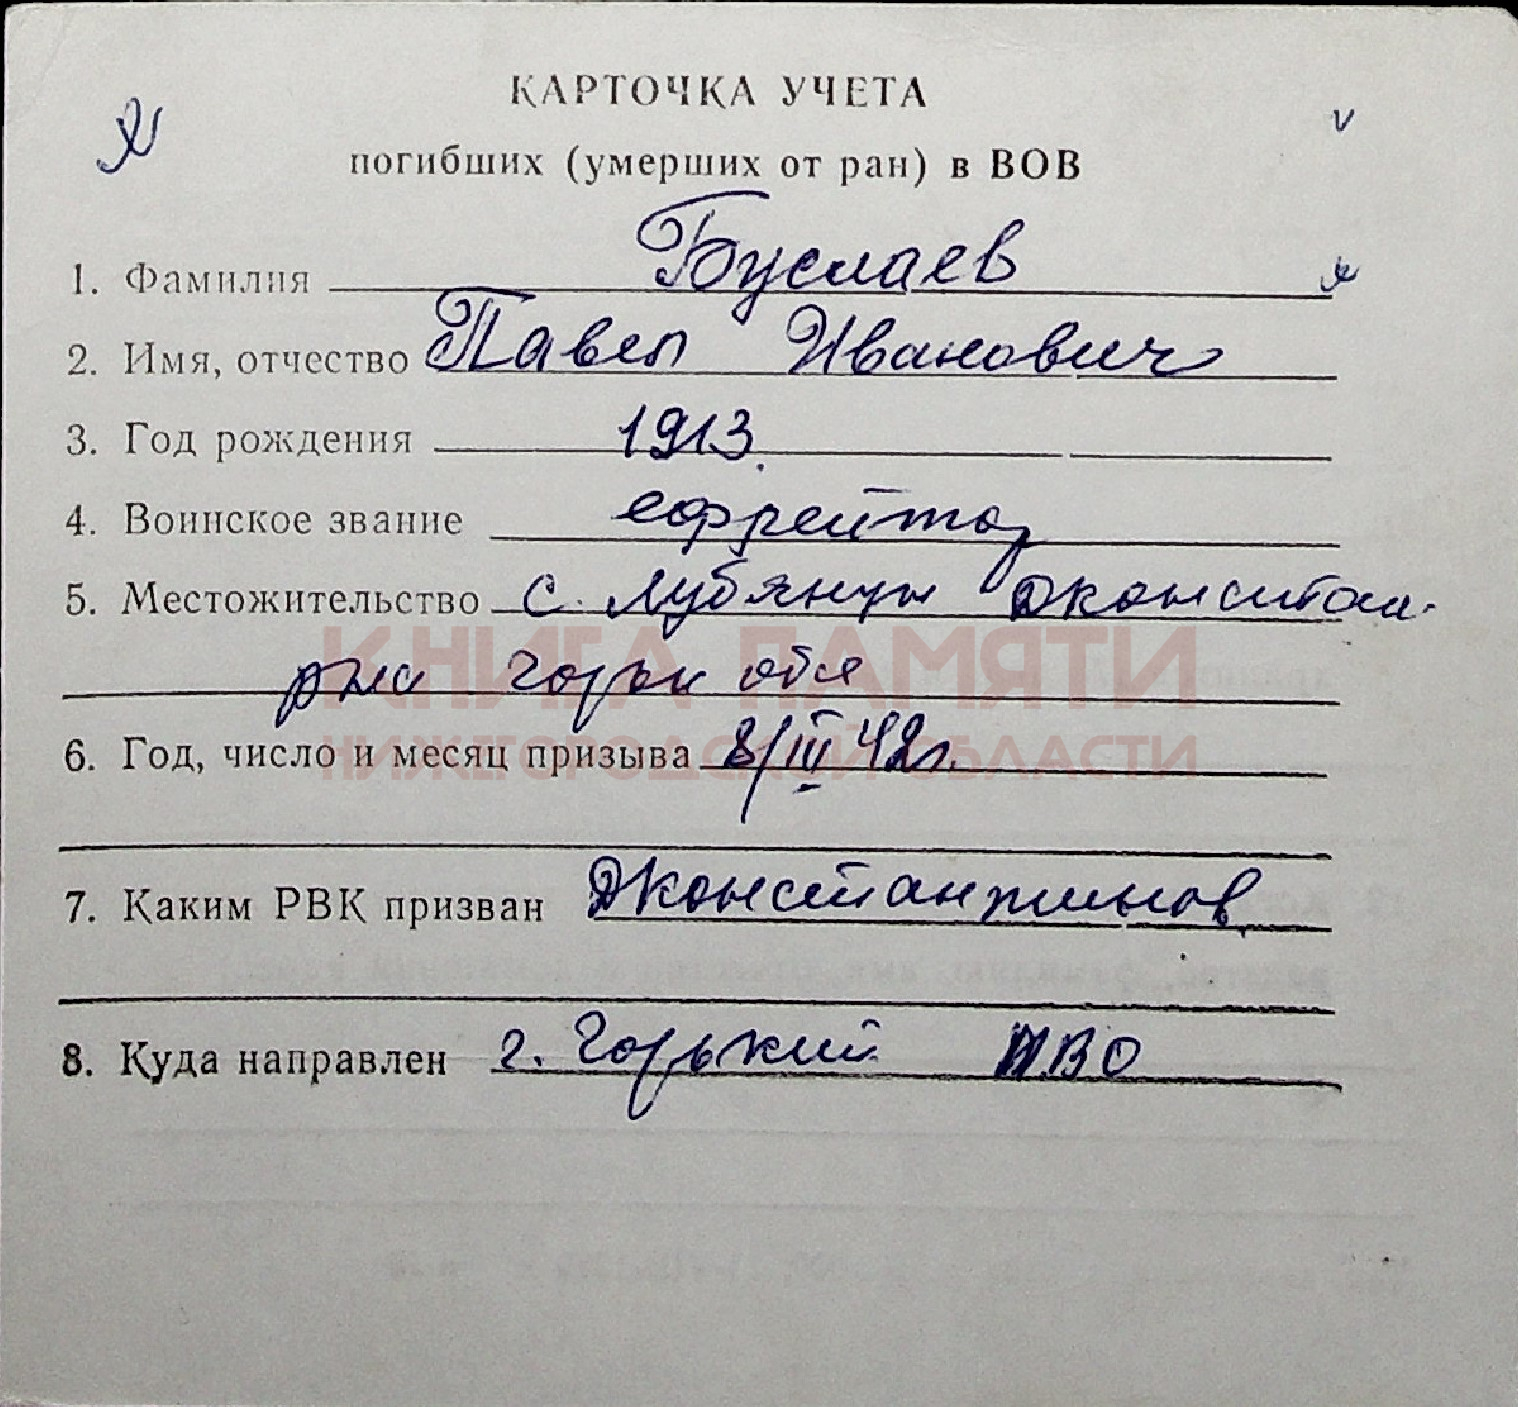 КАРТОЧКА УЧЕТА
погибших (умерших от ран) в ВОВ
1. Фамилия Буслаев
2. Имя, отчество Павел Иванович
3. Год рождения 1913.
4. Воинское звание ефрейтор
5. Местожительство с. Дконстан.
рна горьк обл
КНИГА ПАМЯТИ
НИЖЕГОРОДСКОЙ ОБЛАСТИ
6. Год, число и месяц призыва 8/III 42г.
7. Каким РВК призван Дконстантинов.
8. Куда направлен г. Горький МВО